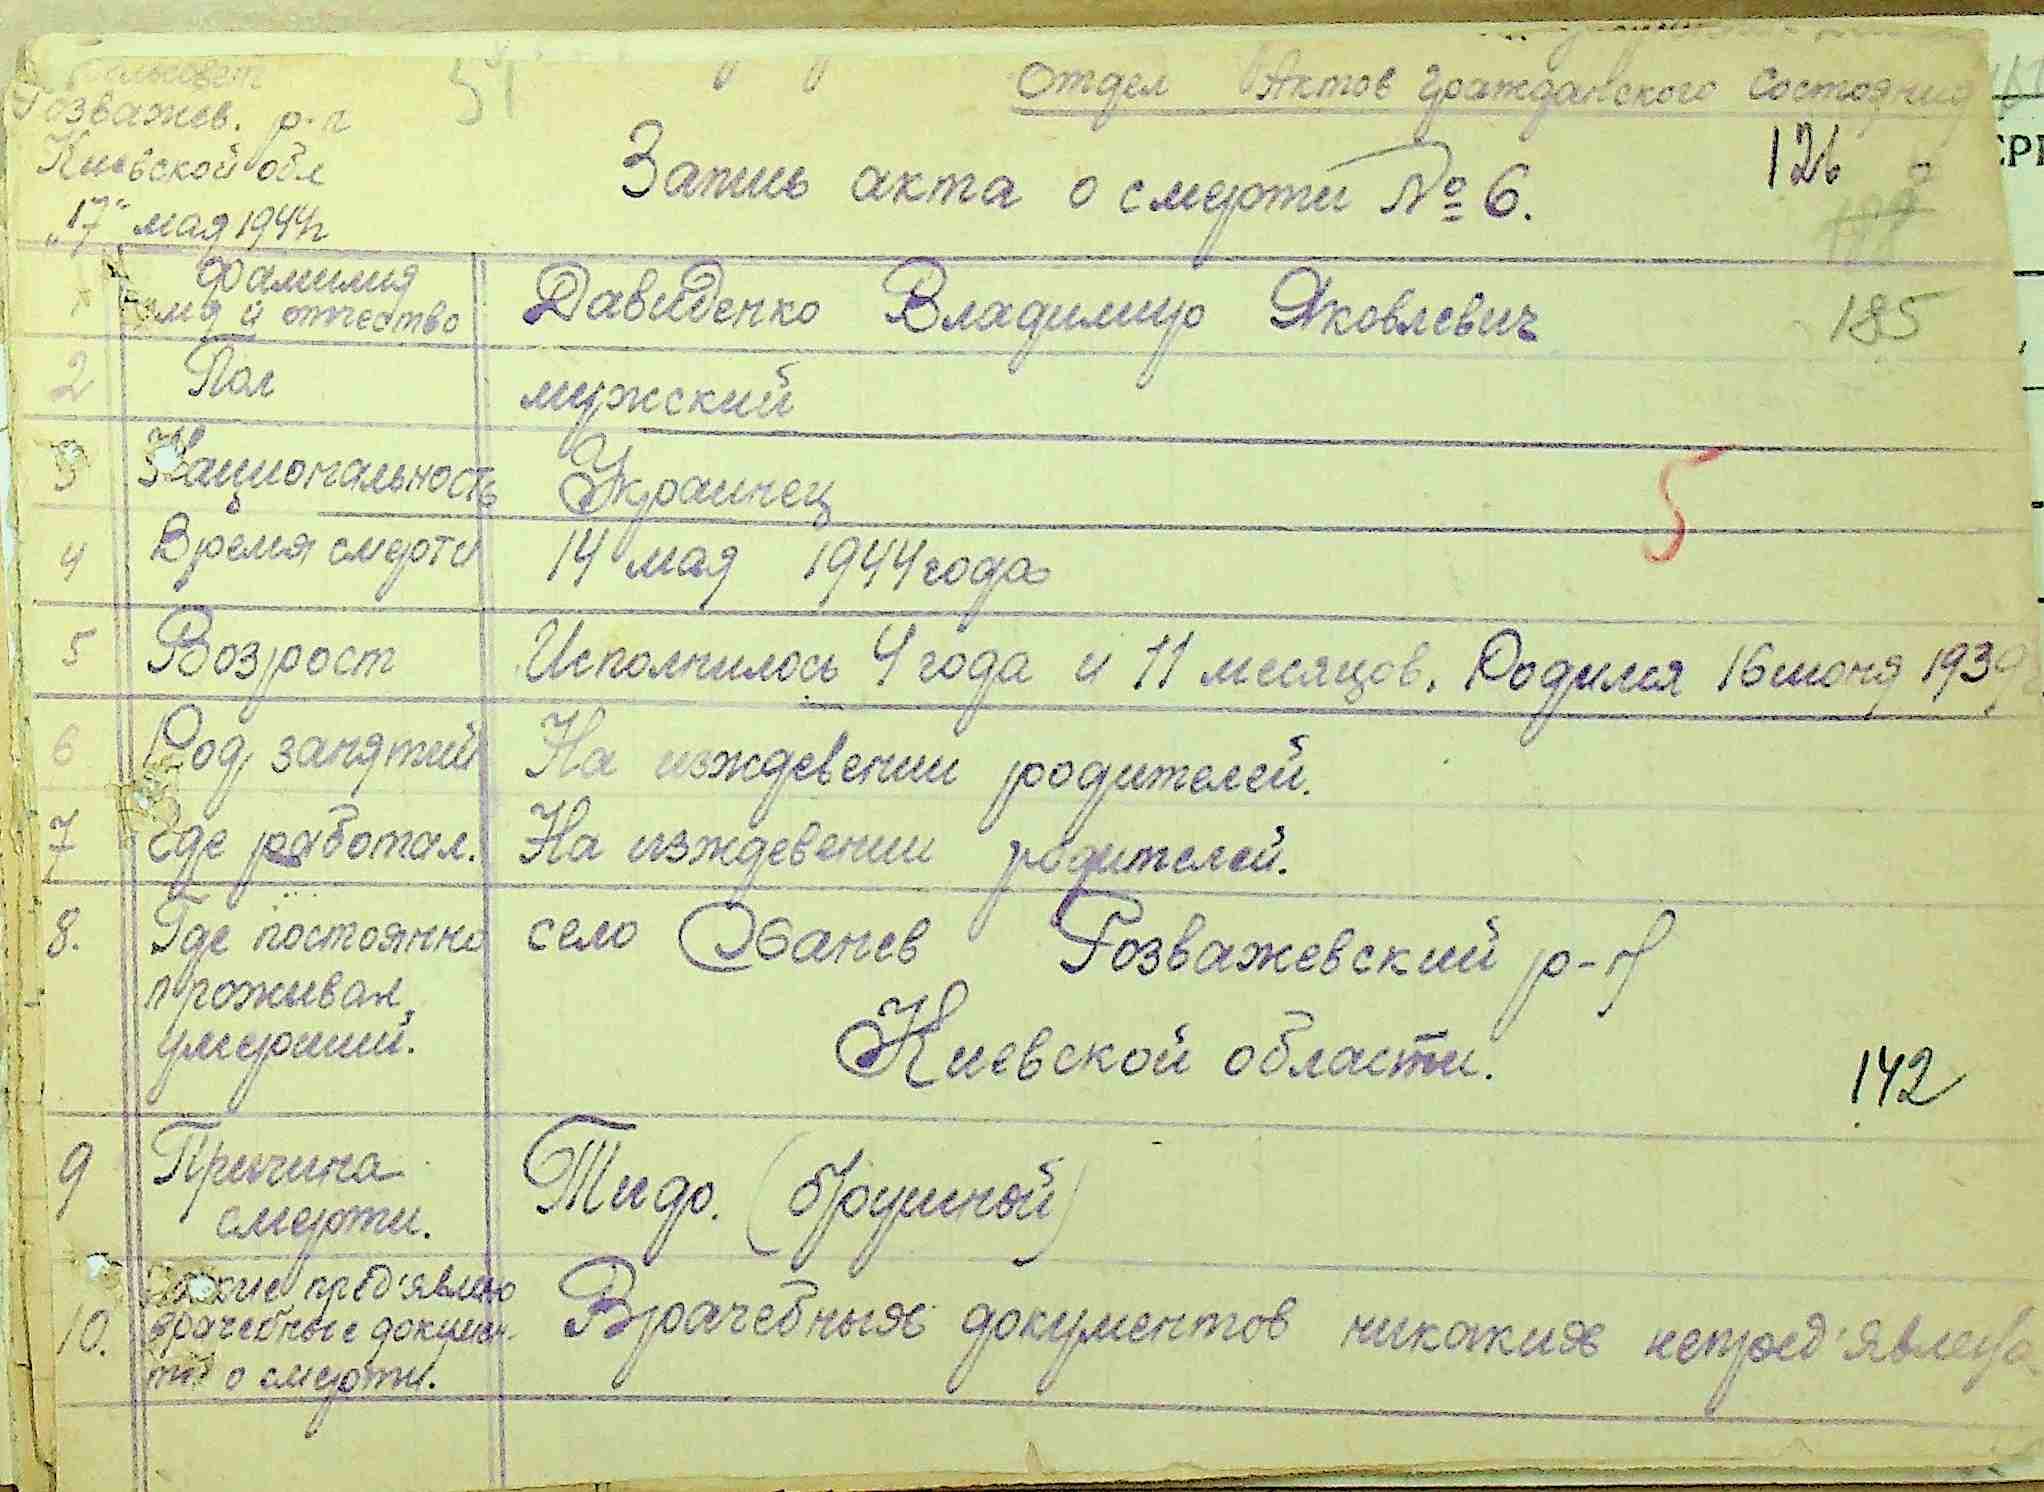 сельсовет
Розважев. р-н
Киевской обл
„17" мая 1944г
51
Отдел Актов гражданского состояния
Запись акта о смерти № 6.
126
185
1 Фамилия имя и отчество Давиденко Владимир Яковлевич
2 Пол мужский
3 Национальность Украинец
5
4 Время смерти 14 мая 1944 года
5 Возрост Исполнилось 4 года и 11 месяцов. Родился 16 июня 1939
6 Род занятий На изждевении родителей.
7 Где работал. На изждевении родителей.
8. Где постоянно село Обанев Розважевский р-н
проживал Киевской области.
умерший.
142
9 Причина Тиф. (брушной)
смерти.
10. какие пред'явлено
врачебные докумен- Врачебных документов никаких непред'явлено
тов о смерти.